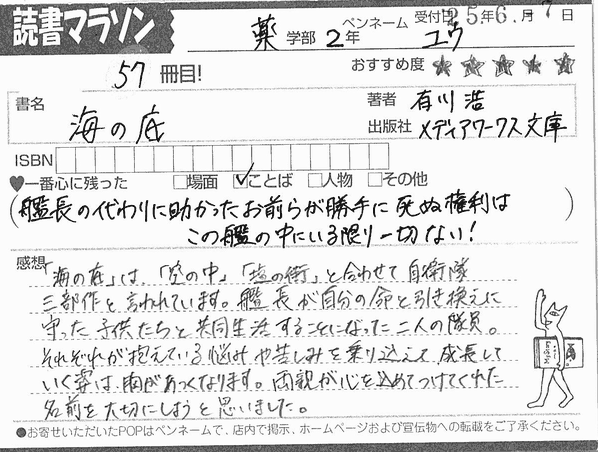 読書マラソン
薬 学部 2年 ペンネーム ユウ 受付日 25年6月7日
57 冊目! おすすめ度 ★★★★★
書名 海の底
著者 有川浩
出版社 メディアワークス文庫
ISBN
♥一番心に残った □場面 ☑ことば □人物 □その他
(艦長の代わりに助かったお前らが勝手に死ぬ権利は
この艦の中にいる限り一切ない!)
感想
「海の底」は、「空の中」「塩の街」と合わせて自衛隊
三部作と言われています。艦長が自分の命と引き換えに
守った子供たちと共同生活することになった二人の隊員。
それぞれが抱えている悩みや苦しみを乗り込えて成長して
いく姿は、胸があつくなります。両親が心を込めてつけてくれた
名前を大切にしようと思いました。
●お寄せいただいたPOPはペンネームで、店内で掲示、ホームページおよび宣伝物への転載をご了承ください。